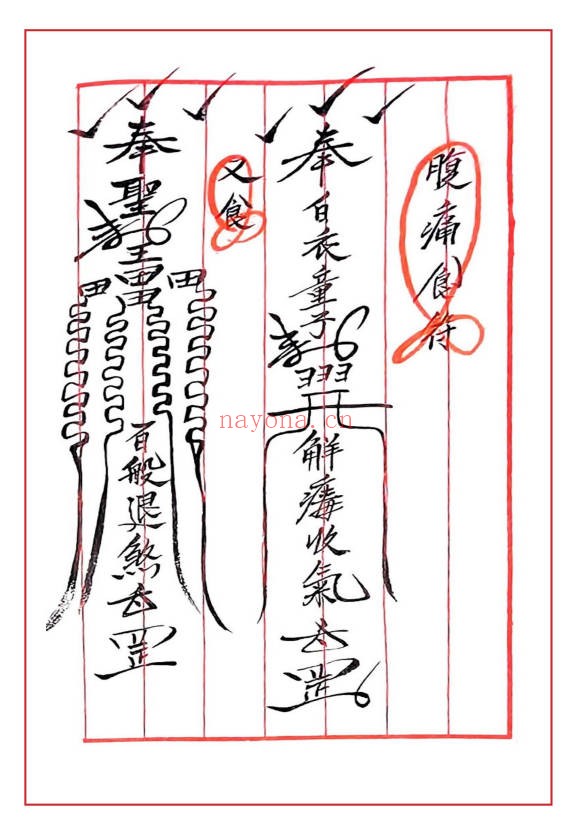 腹痛食符
奉白衣童子
解毒收氣去罡
又食
奉聖
百般退煞去罡
nayona.cn